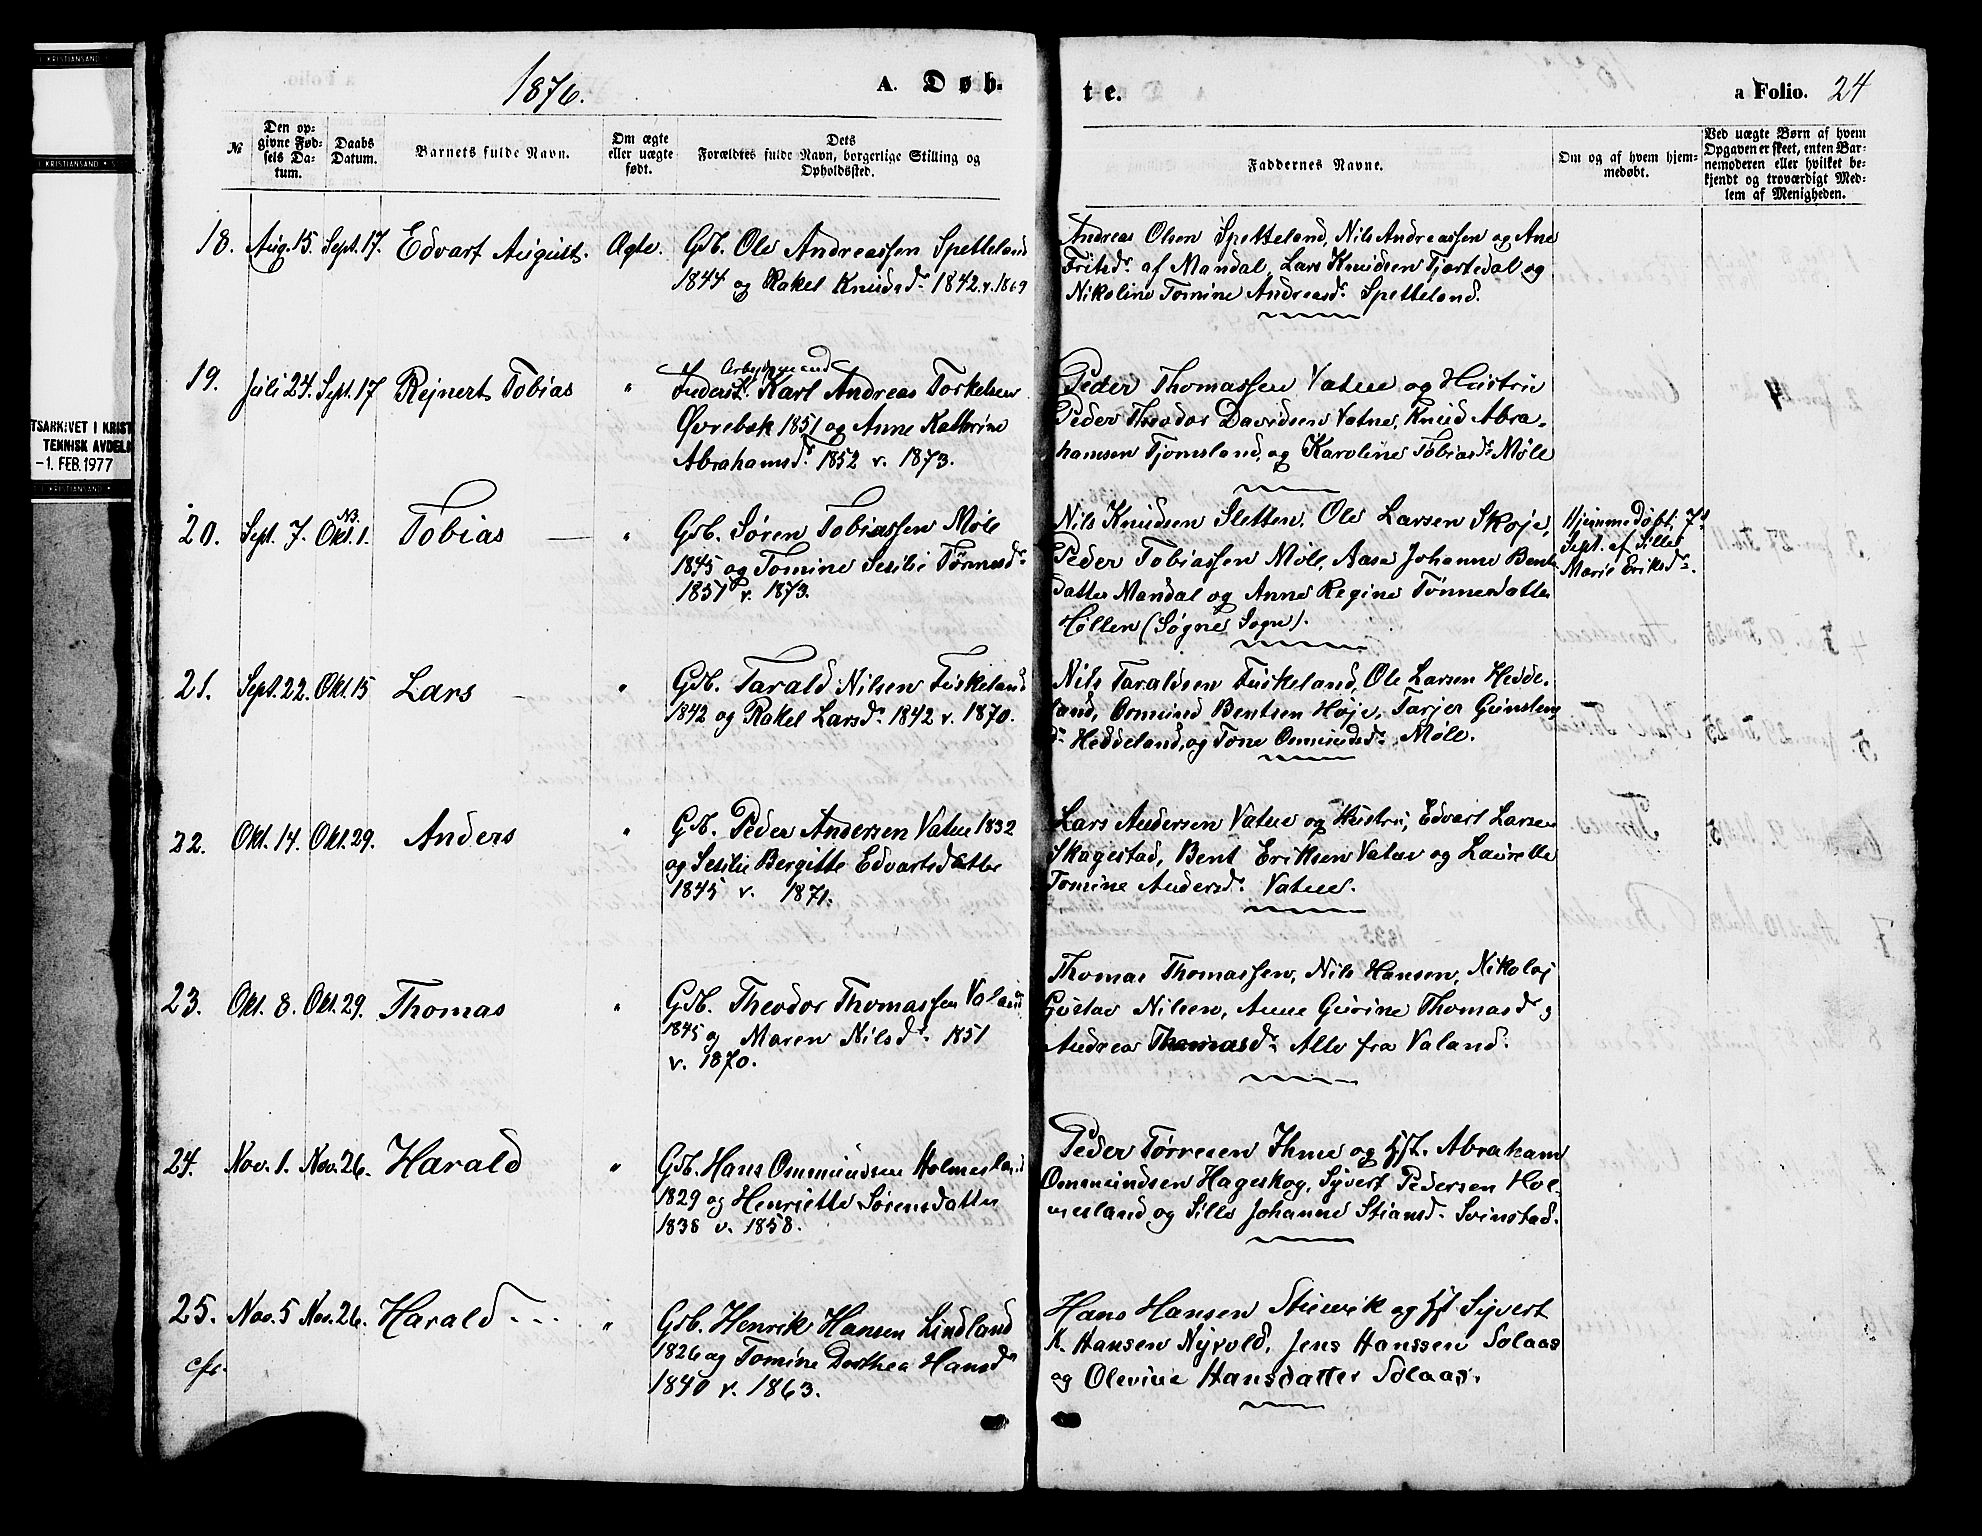 1876.
A. Døb-
te.
a Folio. 24
№
Den op-
givne Fød-
sels Da-
tum.
Daabs
Datum.
Barnets fulde Navn.
Om ægte
eller uægte
født.
Dets
Forældres fulde Navn, borgerlige Stilling og
Opholdssted.
Faddernes Navne.
Om og af hvem hjem-
medøbt.
Ved uægte Børn af hvem
Opgaven er skeet, enten Bar-
nemoderen eller hvilket be-
kjendt og troværdigt Med-
lem af Menigheden.
18. Aug. 15 Sept. 17. Edvart August. Ægte.
Gdb. Ole Andreassen Spetteland
1844 og Rakel Knudsdr. 1842 v. 1869
Andreas Olsen Spetteland, Nils Andreassen og Ane
Fritsdr. af Mandal, Lars Knudsen Tjortedal og
Nikoline Tomine Andreasdr. Spetteland.
19. Juli 24. Sept. 17 Rejnert Tobias "
Arbeidsmand
Inderst. Karl Andreas Torkelsen
Øvrebøk 1851 og Anne Kathrine
Abrahamsdr. 1852 v. 1873.
Peder Thomassen Vatne og Hustru
Peder Theodor Davidsen Vatne, Knud Abra-
hamsen Tjomsland, og Karoline Tobiasdr. Møle
4
20. Sept. 7. NB. Okt. 1. Tobias "
Gdb. Søren Tobiassen Møle
1845 og Tomine Sesilie Tønnesdr.
1851 v. 1873.
Nils Knudsen Sletten, Ole Larsen Skoje,
Peder Tobiassen Møle, Aasa Johanne Bents
datter Mandal og Anne Regine Tønnesdatter
Høllen (Søgne Sogn).
Hjemmedøbt 7d
Sept. af Sille
Marie Eriksdr.
21. Sept. 22. Okt. 15 Lars "
Gdb. Tarald Nilsen Fuskeland
1842 og Rakel Larsdr. 1842 v. 1870.
Nils Taraldsen Fuskeland, Ole Larsen Hedde-
land, Ormund Bentsen Høje, Tarjer Gunstens
dr. Heddeland, og Tone Ommundsdr. Møle.
22. Okt. 14. Okt. 29. Anders "
Gdb. Peder Andersen Vatne 1832
og Sesilie Bergitte Edvartsdatter
1845 v. 1871.
Lars Andersen Vatne og Hustru, Edvart Larsen
Skagestad, Bent Eriksen Vatne og Laurette
Tomine Andersdr. Vatne.
23. Okt. 8. Okt. 29. Thomas "
Gdb. Theodor Thomassen Valand
1845 og Maren Nilsdr. 1851
v. 1870.
Thomas Thomassen, Nils Hansen, Nikolaj
Gustav Nilsen, Anne Gurine Thomasdr. og
Andrea Thomasdr. Alle fra Valand.
24. Nov. 1. Nov. 26. Harald "
Gdb. Hans Ommundsen Holmesland
1829 og Henriette Sørensdatter
1838 v. 1858.
Peder Tørresen Ihme og Hst. Abraham
Ommundsen Hageskog, Syvert Pedersen Hol-
mesland og Sille Johanne Stiansdr. Svinstad.
25. Nov. 5 Nov. 26. Harald "
Gdb. Henrik Hansen Lindland
1826 og Tomine Dorthea Hansdr
1840 v. 1863.
Hans Hansen Stusvik og Hst. Syvert
K. Hansen Nyvold, Jens Hanssen Solaas
og Olevine Hansdatter Solaas.
TSARKIVET I KRIST
TEKNISK AVDELI
-1. FEB. 1977
I KRISTIANSAND
I KRISTIANSAND
I KRISTIANSAND